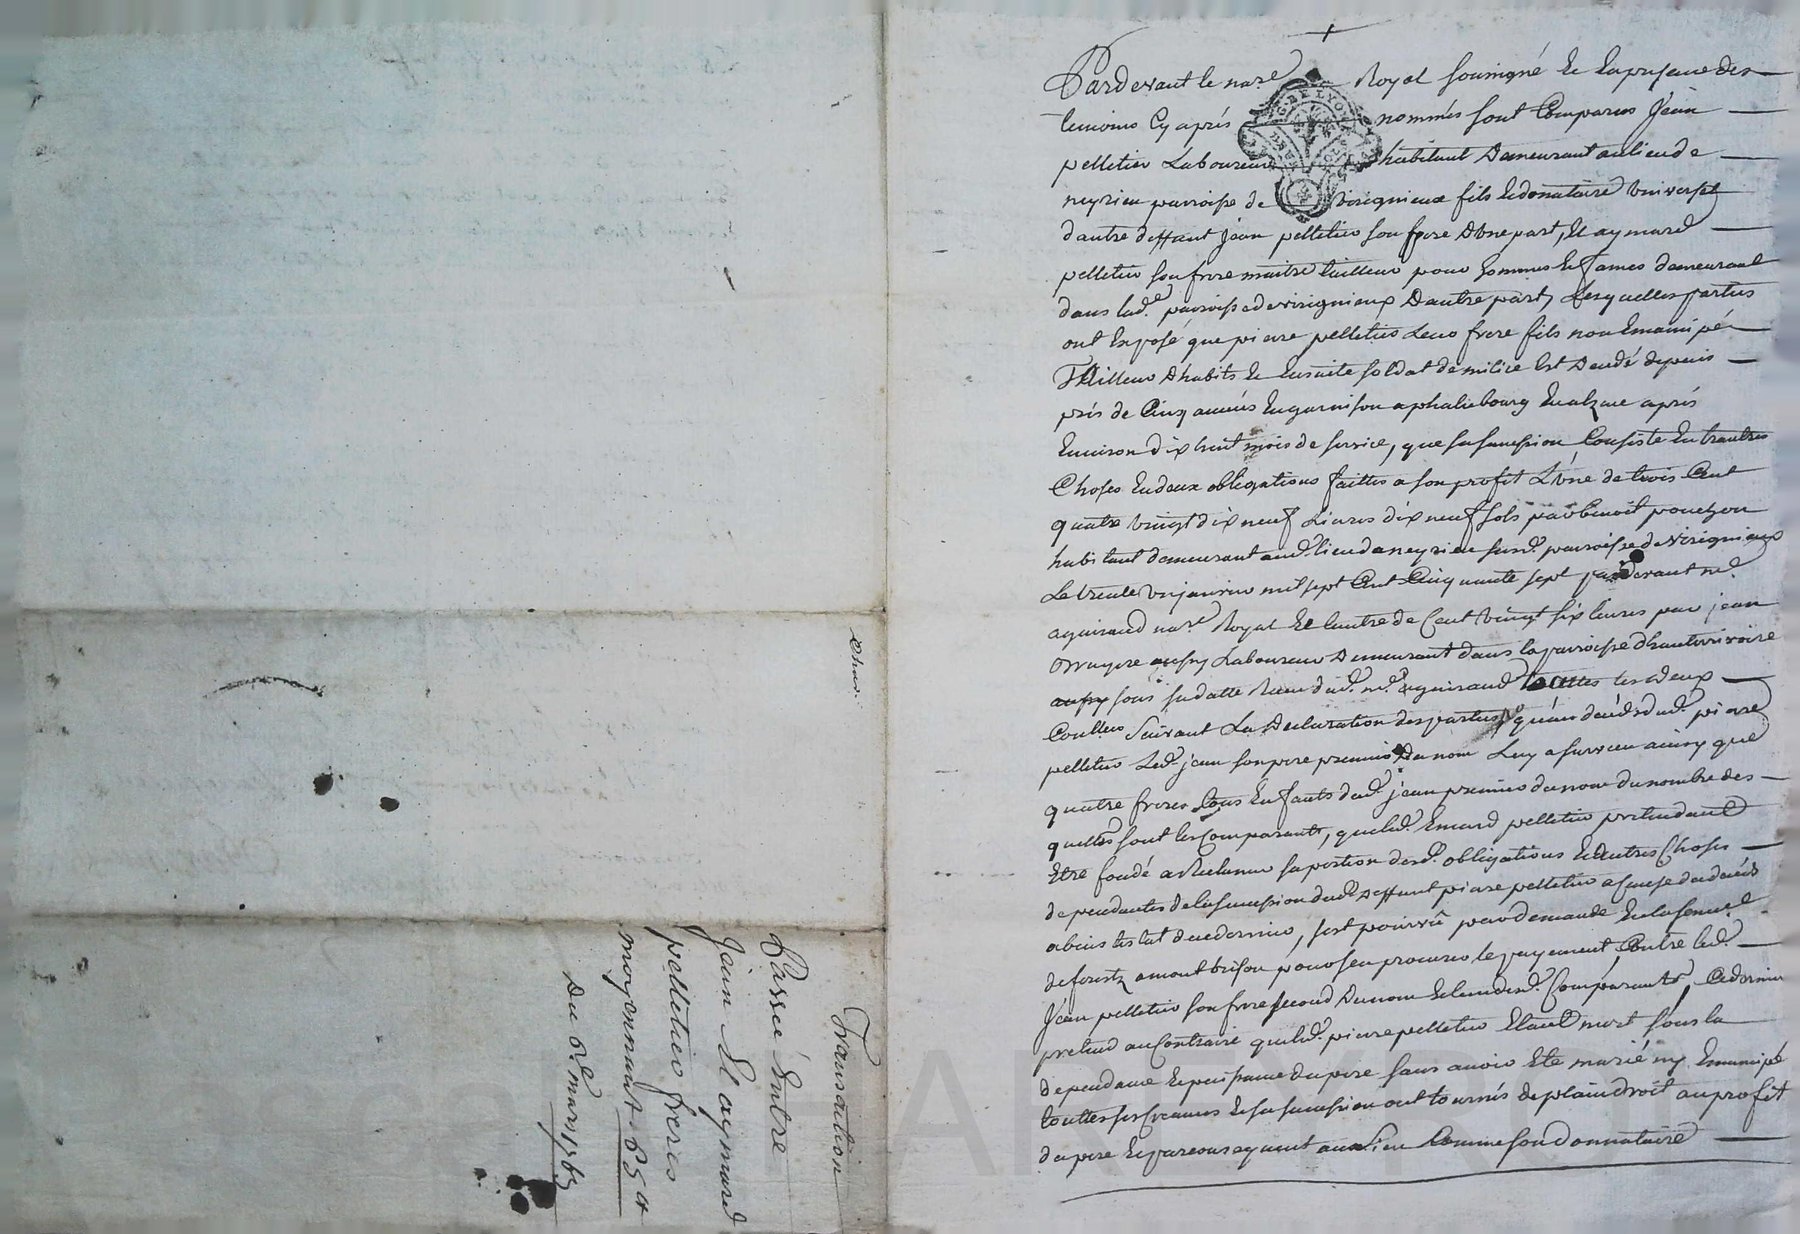 Pardevant le nare Royal soussigné Et En presence des
temoins Cy aprés nommés sont Comparus Jean
pelletier Laboureur habitant Demeurant au lieu de
neyrieu parroisse de virignieux fils Et donnataire Universel
d'autre deffunt jean pelletier son pere D'Une part, Et aymard
pelletier son frere maitre tailleur pour hommes Et femes demeurant
dans lad.e parroisse de virignieux D'autre part, Lesquelles parties
ont Exposé que pierre pelletier Leur frere fils non Emancipé
Tailleur D'habits Et Ensuite soldat de milice Est Decedé depuis
prés de Cinq années En garnison a phalsbourg En alzace aprés
Environ dix huit mois de service, que sa succession Consiste Entrautres
Choses En deux obligations faittes a son profit L'Une de trois Cent
quatre Vingt dix neuf Livres dix neuf sols par benoit ponchon
habitant demeurant aud. lieu de neyrieu susd. parroisse de virignieux
Le trente Un janvier mil sept Cent Cinquante sept pardevant me.
aguiraud nare Royal Et L'autre de Cent Vingt six livres par jean
aussy Laboureur Demeurant dans la parroisse d'hauterivoire
aussy sous sa datte Reçu dud. me. aguiraud touttes les deux
Coullées suivant La Declaration des parties, qu'au decés dud. pierre
pelletier Led. jean son pere premier Du nom Luy a survecu ainsy que
quatre freres tous Enfants dud. jean premier du nom du nombre des
quels sont les Comparants, que led. Emard pelletier pretendant
Etre fondé a Reclamer sa portion desd. obligations Et autres Choses
dependantes de la succession dud. Deffunt pierre pelletier a cause du decés
abintestat de ce dernier, s'est pourvû par demande En la senec.e
de forestz a montbrison pour se procurer le payement, Contre led.
Jean pelletier son frere second Du nom Et l'un desd. Comparants, Ce dernier
pretend au Contraire que led. pierre pelletier Etant mort sous la
dependance Et puissance du pere sans avoir Eté marié ny Emancipé
touttes ses Creances Et sa succession ont tournés de plain droit au profit
du pere Et par Consequent au sien Comme son donnataire
Transaction
Passée Entre
Jean Et aymard
pelletier freres
moyennant 65 lt
Du 6e mars 1762